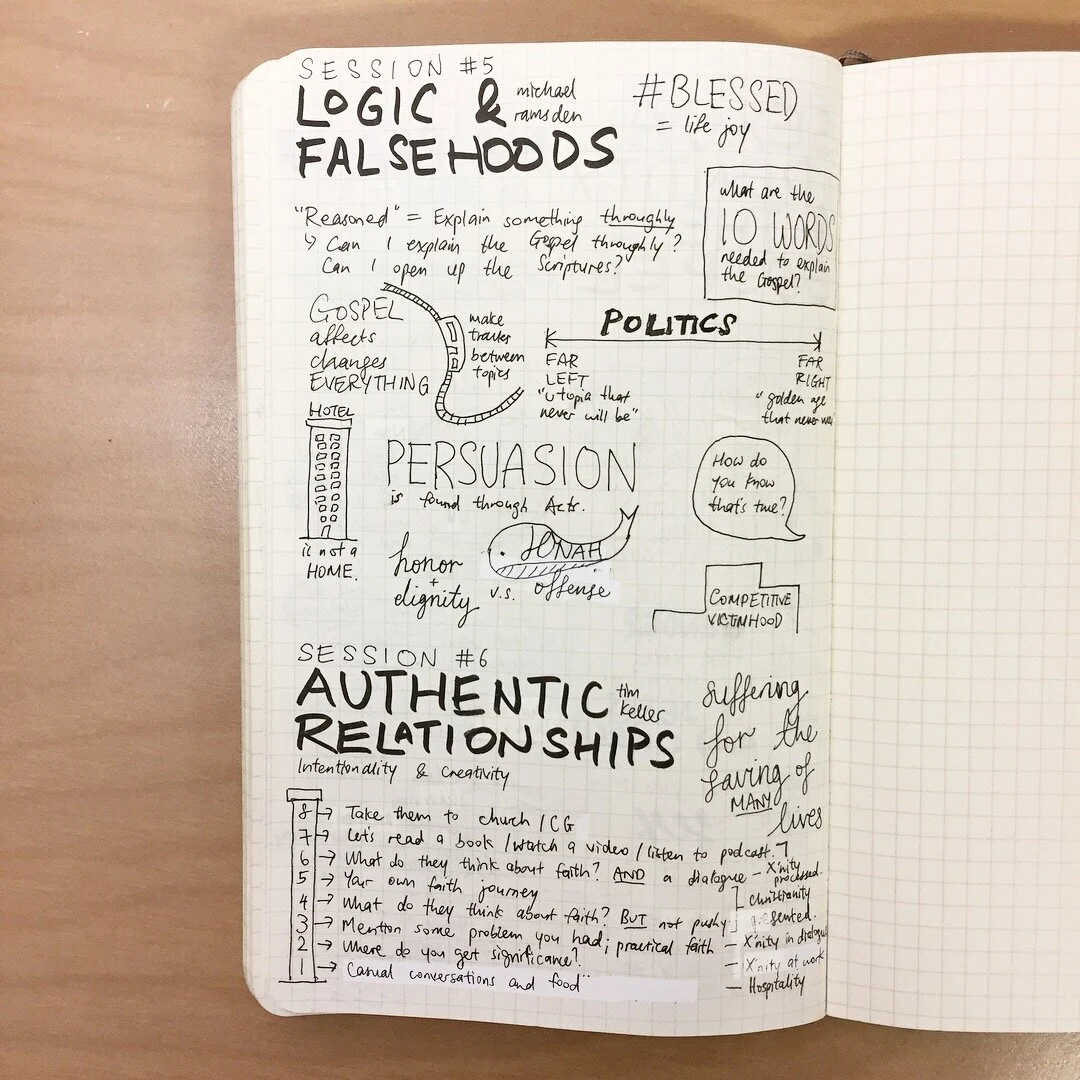 SESSION #5
LOGIC &
FALSEHOODS
michael
ramsden
#BLESSED
= life joy
"Reasoned" = Explain something throughly
↳ Can I explain the Gospel throughly?
Can I open up the Scriptures?
what are the
10 WORDS
needed to explain
the Gospel?
GOSPEL
affects
changes
EVERYTHING
make
tracks
between
topics
POLITICS
FAR
LEFT
"utopia that
never will be"
FAR
RIGHT
"golden age
that never was
HOTEL
is not a
HOME.
PERSUASION
is found through Acts.
How do
you know
that's true?
honor
+
dignity
v.s.
JONAH
offense
COMPETITIVE
VICTIMHOOD
SESSION #6
AUTHENTIC
RELATIONSHIPS
tim
keller
Intentionality & creativity
suffering
for the
saving of
MANY
lives
8 → Take them to church / CG
7 → Let's read a book / watch a video / listen to podcast.
6 → What do they think about faith? AND a dialogue — X'nity
processed.
5 → Your own faith journey
4 → What do they think about faith? BUT not pushy
christianity
presented.
3 → Mention some problem you had; practical faith — X'nity in dialogue
2 → Where do you get significance? — X'nity at work
1 → Casual conversations and food — Hospitality